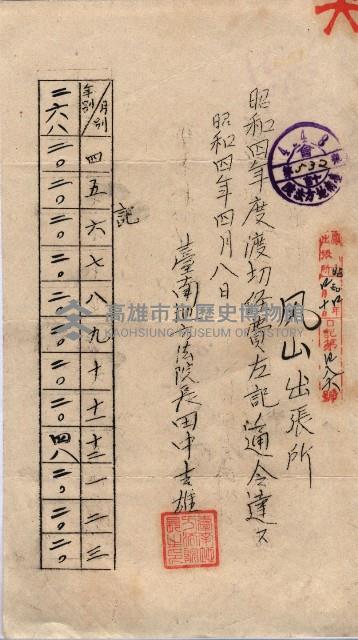 大
4 4 8
會
鳳山出張所
昭和四年度渡切經費左記通令達ス
昭和四年四月八日
臺南地方法院長田中吉雄
記
月別 年別
四 二〇
五 二〇
六 二〇
七 二〇
八 二〇
九 二〇
十 二〇
十一 二〇
十二 四八
一 二〇
二 二〇
三 二〇
二六八
高雄市立歷史博物館
KAOHSIUNG MUSEUM OF HISTORY